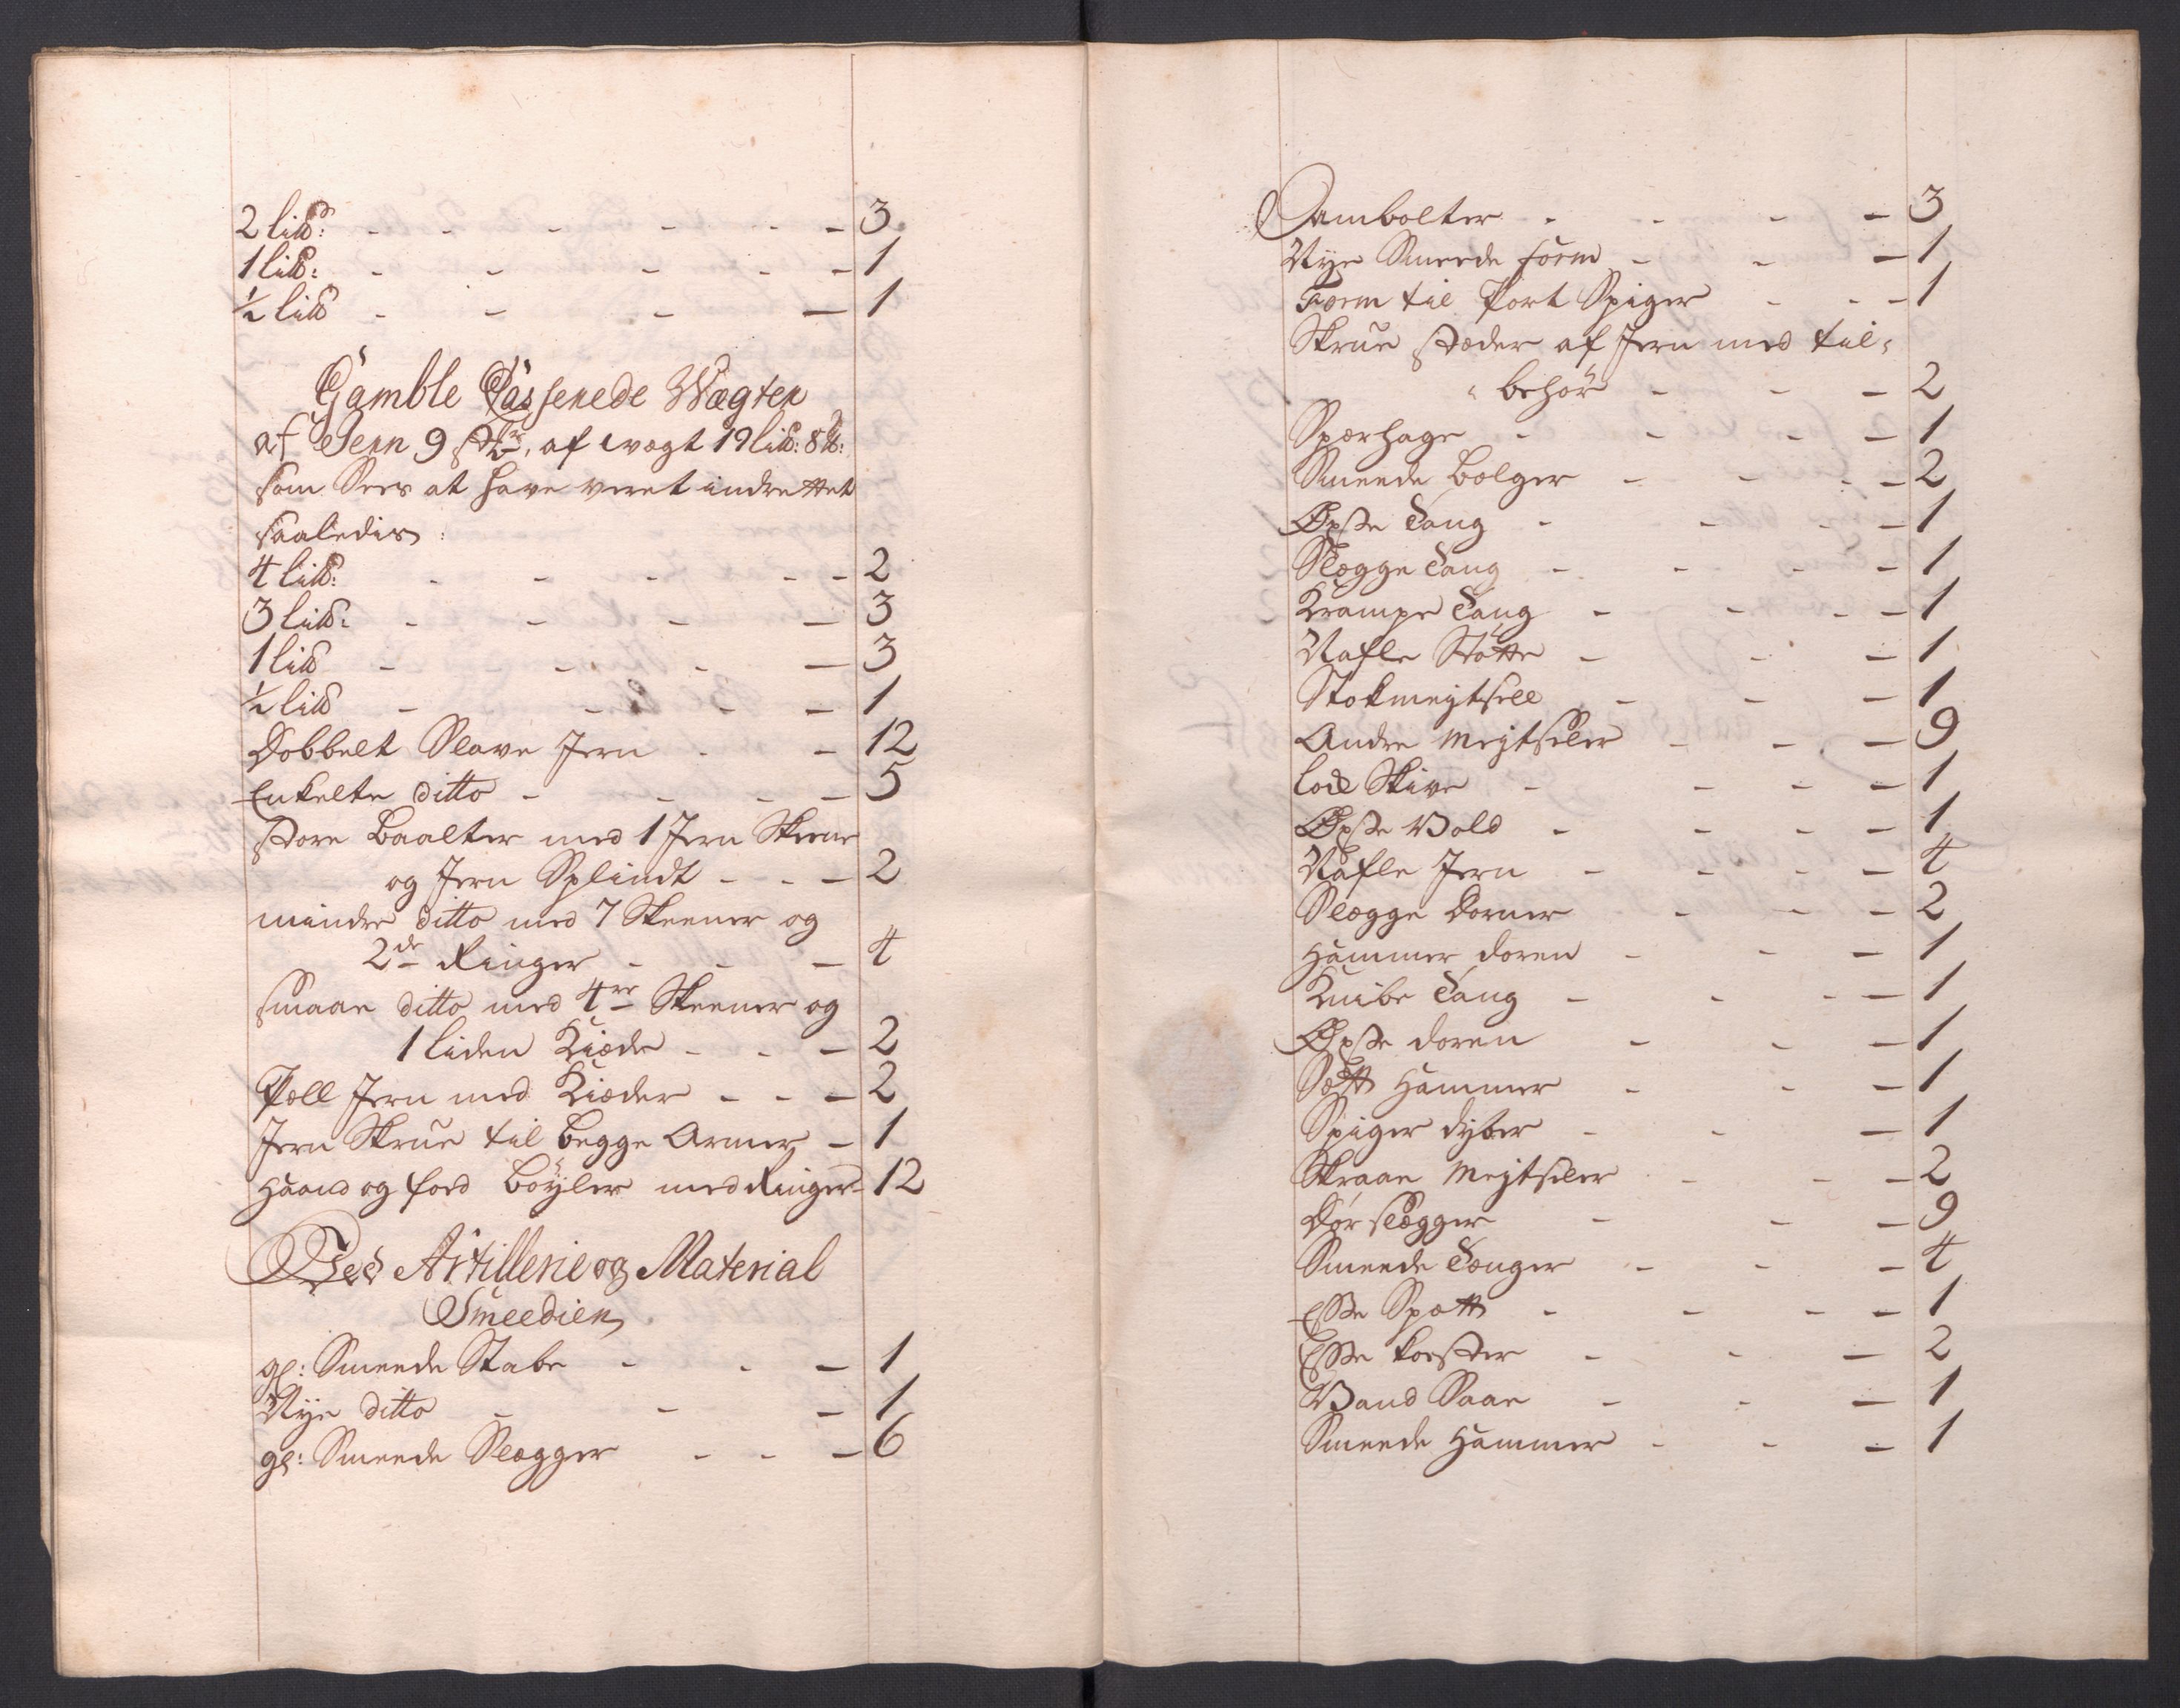 2 li℔: - - - - - 3
1 li℔: - - - - - 1
½ li℔ - - - - 1
Gamble Casserede Wægter
af Jern 9 stkr, af wægt 19 li℔: 8 ℔:
som Sees at have veret indrettet
saaledis:
4 li℔: - - - - - 2
3 li℔: - - - - 3
1 li℔ - - - - 3
½ li℔ - - - - 1
Dobbelt Slave Jern - - 12
Enkelte ditto - - - - 5
store Baalter med 1 Jern Skeene
og Jern Splindt - - - 2
mindre ditto med 7 Skeener og
2de Ringer - - - 4
smaae ditto med 4re Skeener og
1 liden Kiæde - - - 2
Pæll Jern med Kiæder - - - 2
Jern Skrue til begge Armer - 1
Haand og foed Böyler med Ringer - 12
Ved Artillerie og Material
Smeedien
gl: Smeede Stabe - - - 1
Nye ditto - - - 1
gl: Smeede Slægger - - - 6
Ambolter - - - - 3
Nye Smeede form - - - 1
Form til Port Spiger - - - 1
Skrue stæder af Jern med til-
behör - - - 2
Spærhage - - - - 1
Smeede Bælger - - - - 2
Øxse Tang - - - - 1
Slægge Tang - - - - 1
Krampe Tang - - - - 1
Nafle Støtte - - - 1
Stokmeytsell - - - 1
Andre Meytseler - - - 9
Lod Skive - - - - 1
Øxse Vold - - - - 1
Nafle Jern - - - - 4
Slægge Dorner - - - 2
Hammer doren - - - 1
Knibe Tang - - - - 1
Øxse doren - - - 1
Sætt Hammer - - - 1
Spiger dyber - - - 1
Skraae Meytseler - - - 2
Dør slægger - - - 9
Smeede Tænger - - - 4
Esse Spætt - - - - 1
Esse koester - - - 2
Vand Saae - - - 1
Smeede Hammer - - - 1